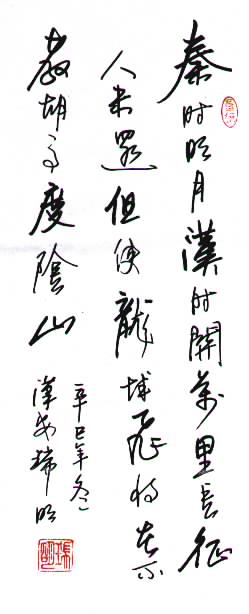 秦时明月漢时關萬里長征
人未還但使龍城飛将在不
教胡馬度陰山
辛巳年冬
漢安瑞明